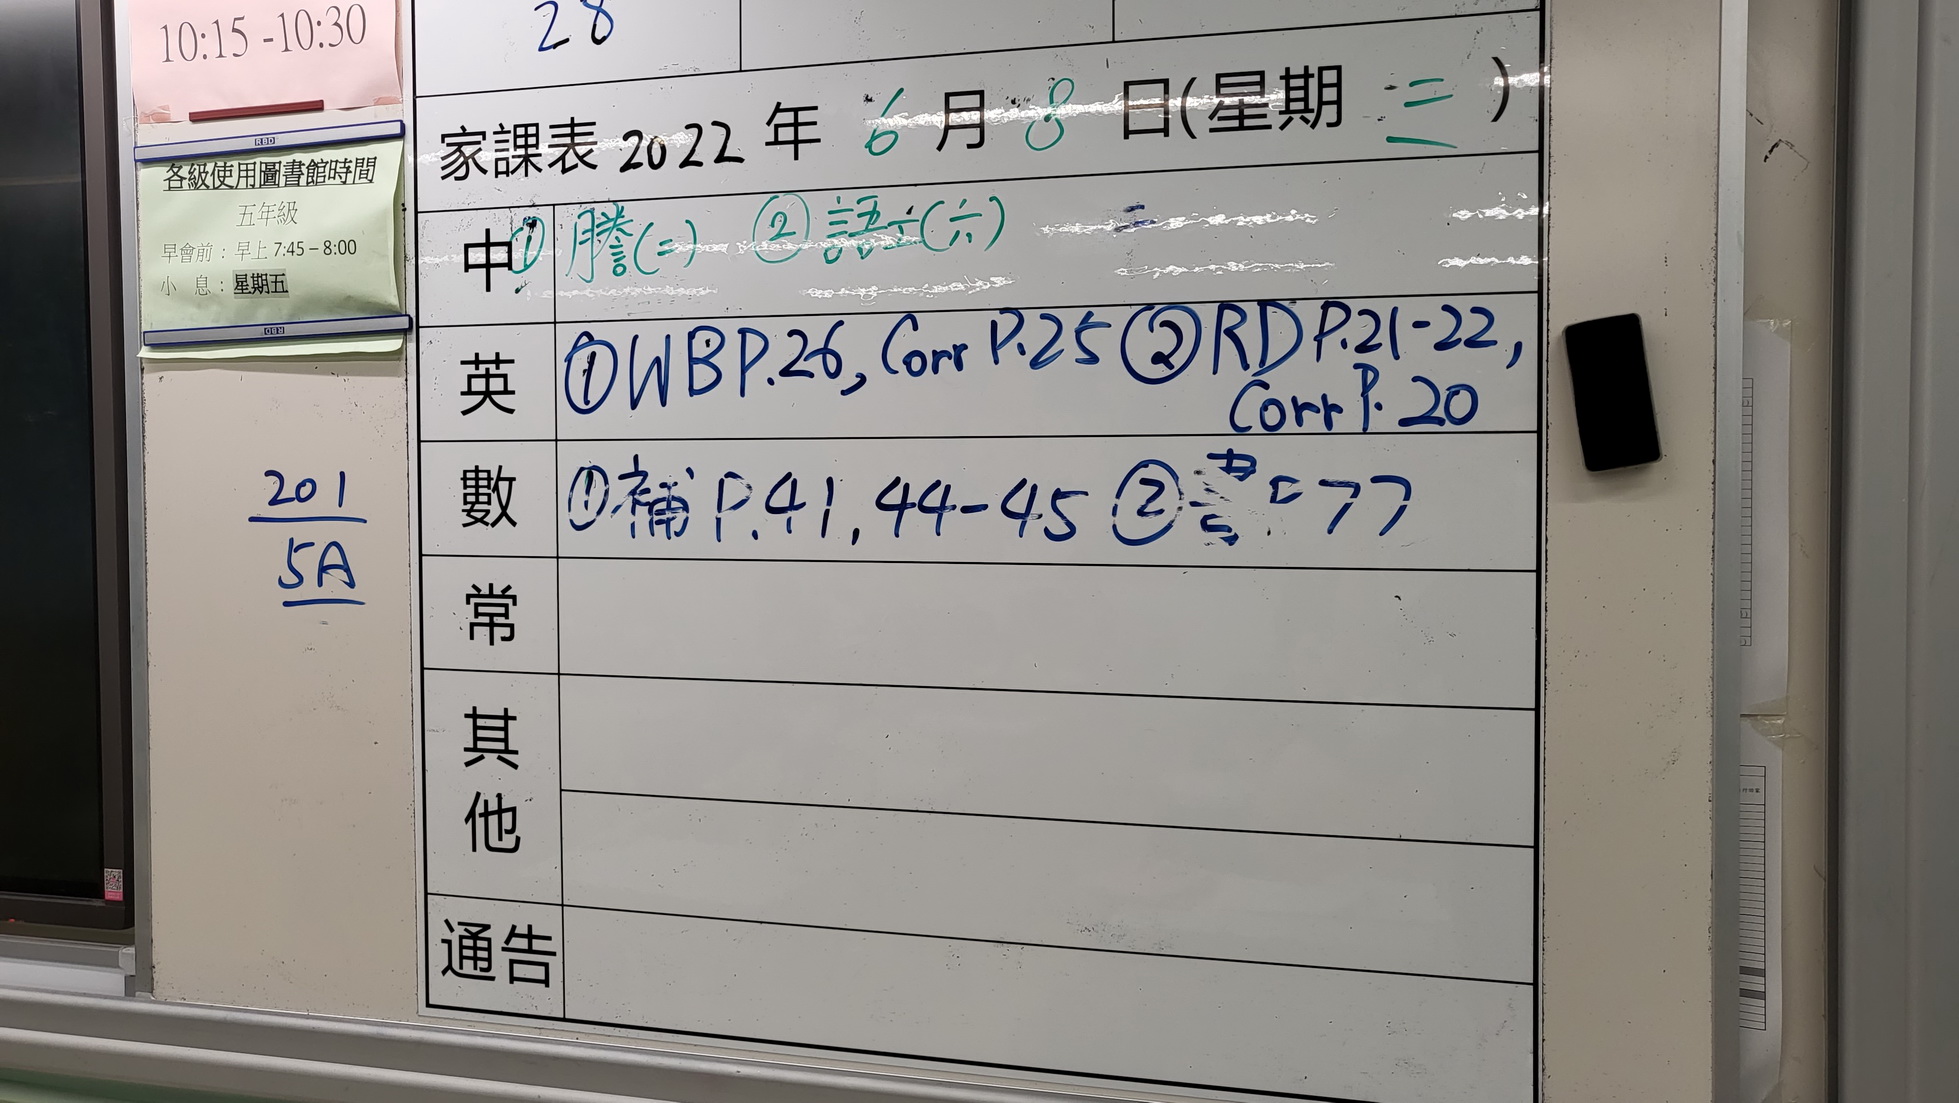 10:15 -10:30
RBD
各級使用圖書館時間
五年級
早會前：早上 7:45 – 8:00
小 息：星期五
RBD
201
5A
28
家課表 2022 年 6 月 8 日(星期 三 )
中 ① 謄(二) ② 語(六)
英 ① WB P.26, Corr P.25 ② RD P.21-22,
Corr P. 20
數 ① 補 P.41, 44-45 ② 77
常
其
他
通告